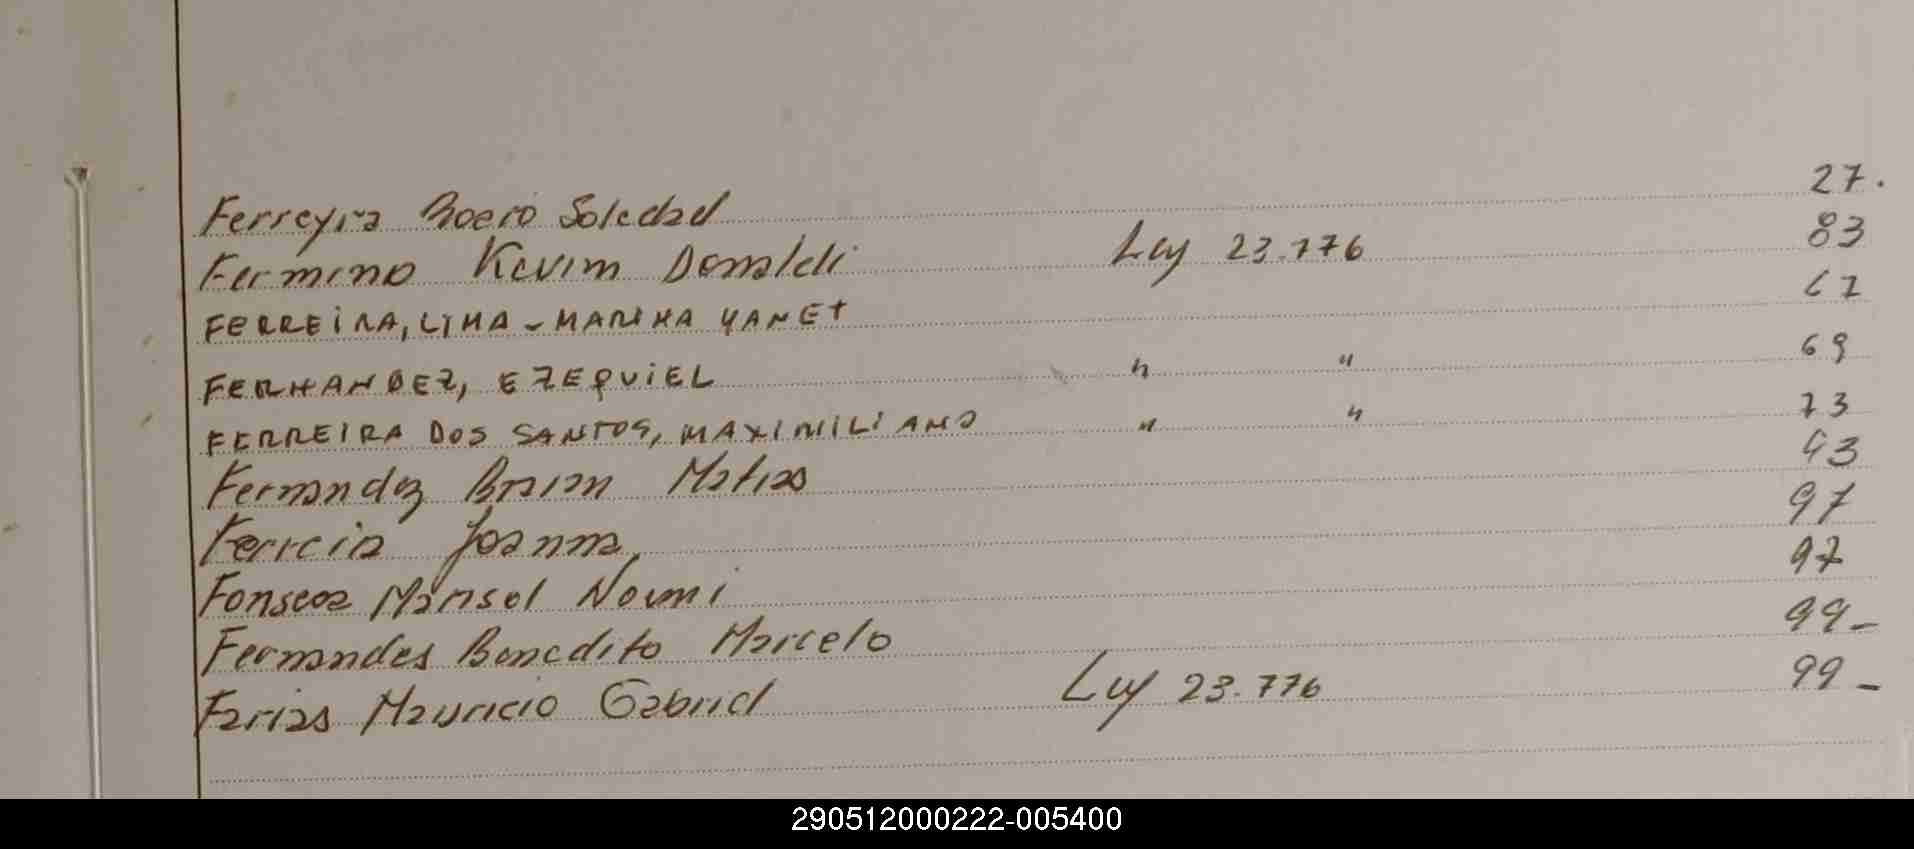 Ferreyra Roero Soledad 27.
Fermino Kevim Donaldi Ley 23.776 83
FERREIRA, LIMA - MARINA YANET 67
FERNANDEZ, EZEQUIEL " " 69
FERREIRA DOS SANTOS, MAXIMILIANO " " 73
Fernandez Braian Matias 93
Ferreira Joanna 97
Fonseca Marisol Noemi 97
Fernandes Benedito Marcelo 99-
Farias Mauricio Gabriel Ley 23.776 99-
290512000222-005400